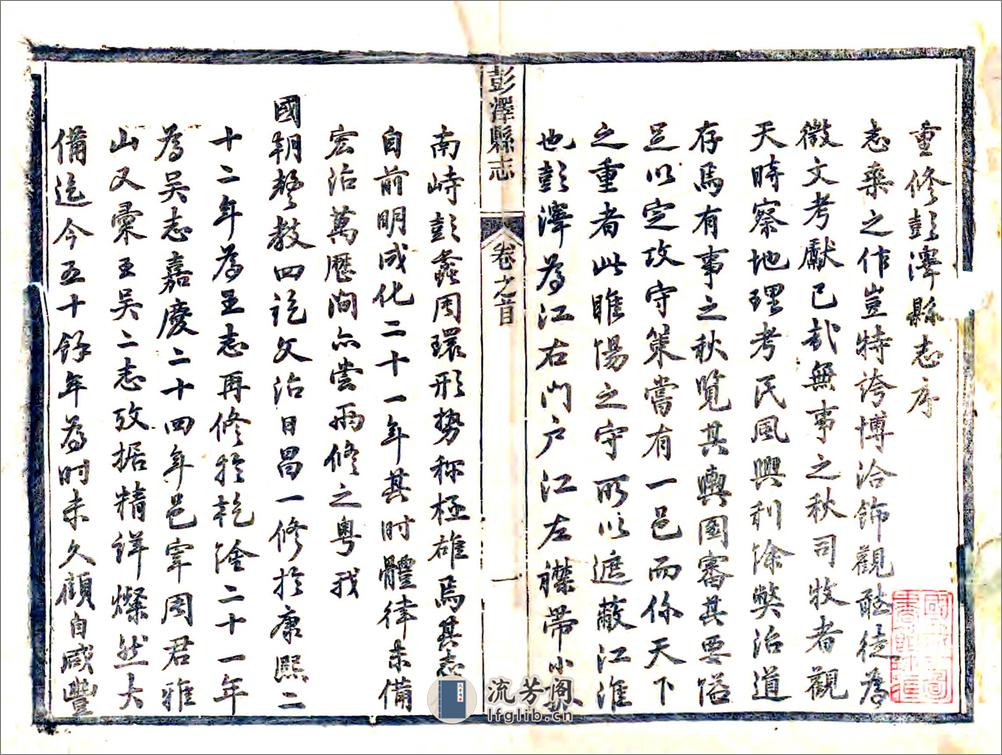 重修彭澤縣志序
志乘之作豈特誇博洽飾觀聽徒為
徵文考獻已哉無事之秋司牧者觀
天時察地理考民風興利除弊治道
存焉有事之秋覽其輿圖審其要隘
足以定攻守策嘗有一邑而係天下
之重者此睢陽之守所以遮蔽江淮
也彭澤為江右門户江左襟帶小孤
彭澤縣志
卷之首
一
南峙彭蠡周環形勢称極雄焉其志
自前明成化二十一年其时體律未備
宏治萬歷间亦嘗兩修之粵我
國朝聲教四訖文治日昌一修於康熙二
十二年為王志再修於乾隆二十一年
為吴志嘉慶二十四年邑宰周君雅
山又彙王吴二志攷据精詳燦然大
備迄今五十餘年為时未久顧自咸豐
流芳阁
lfglib.cn